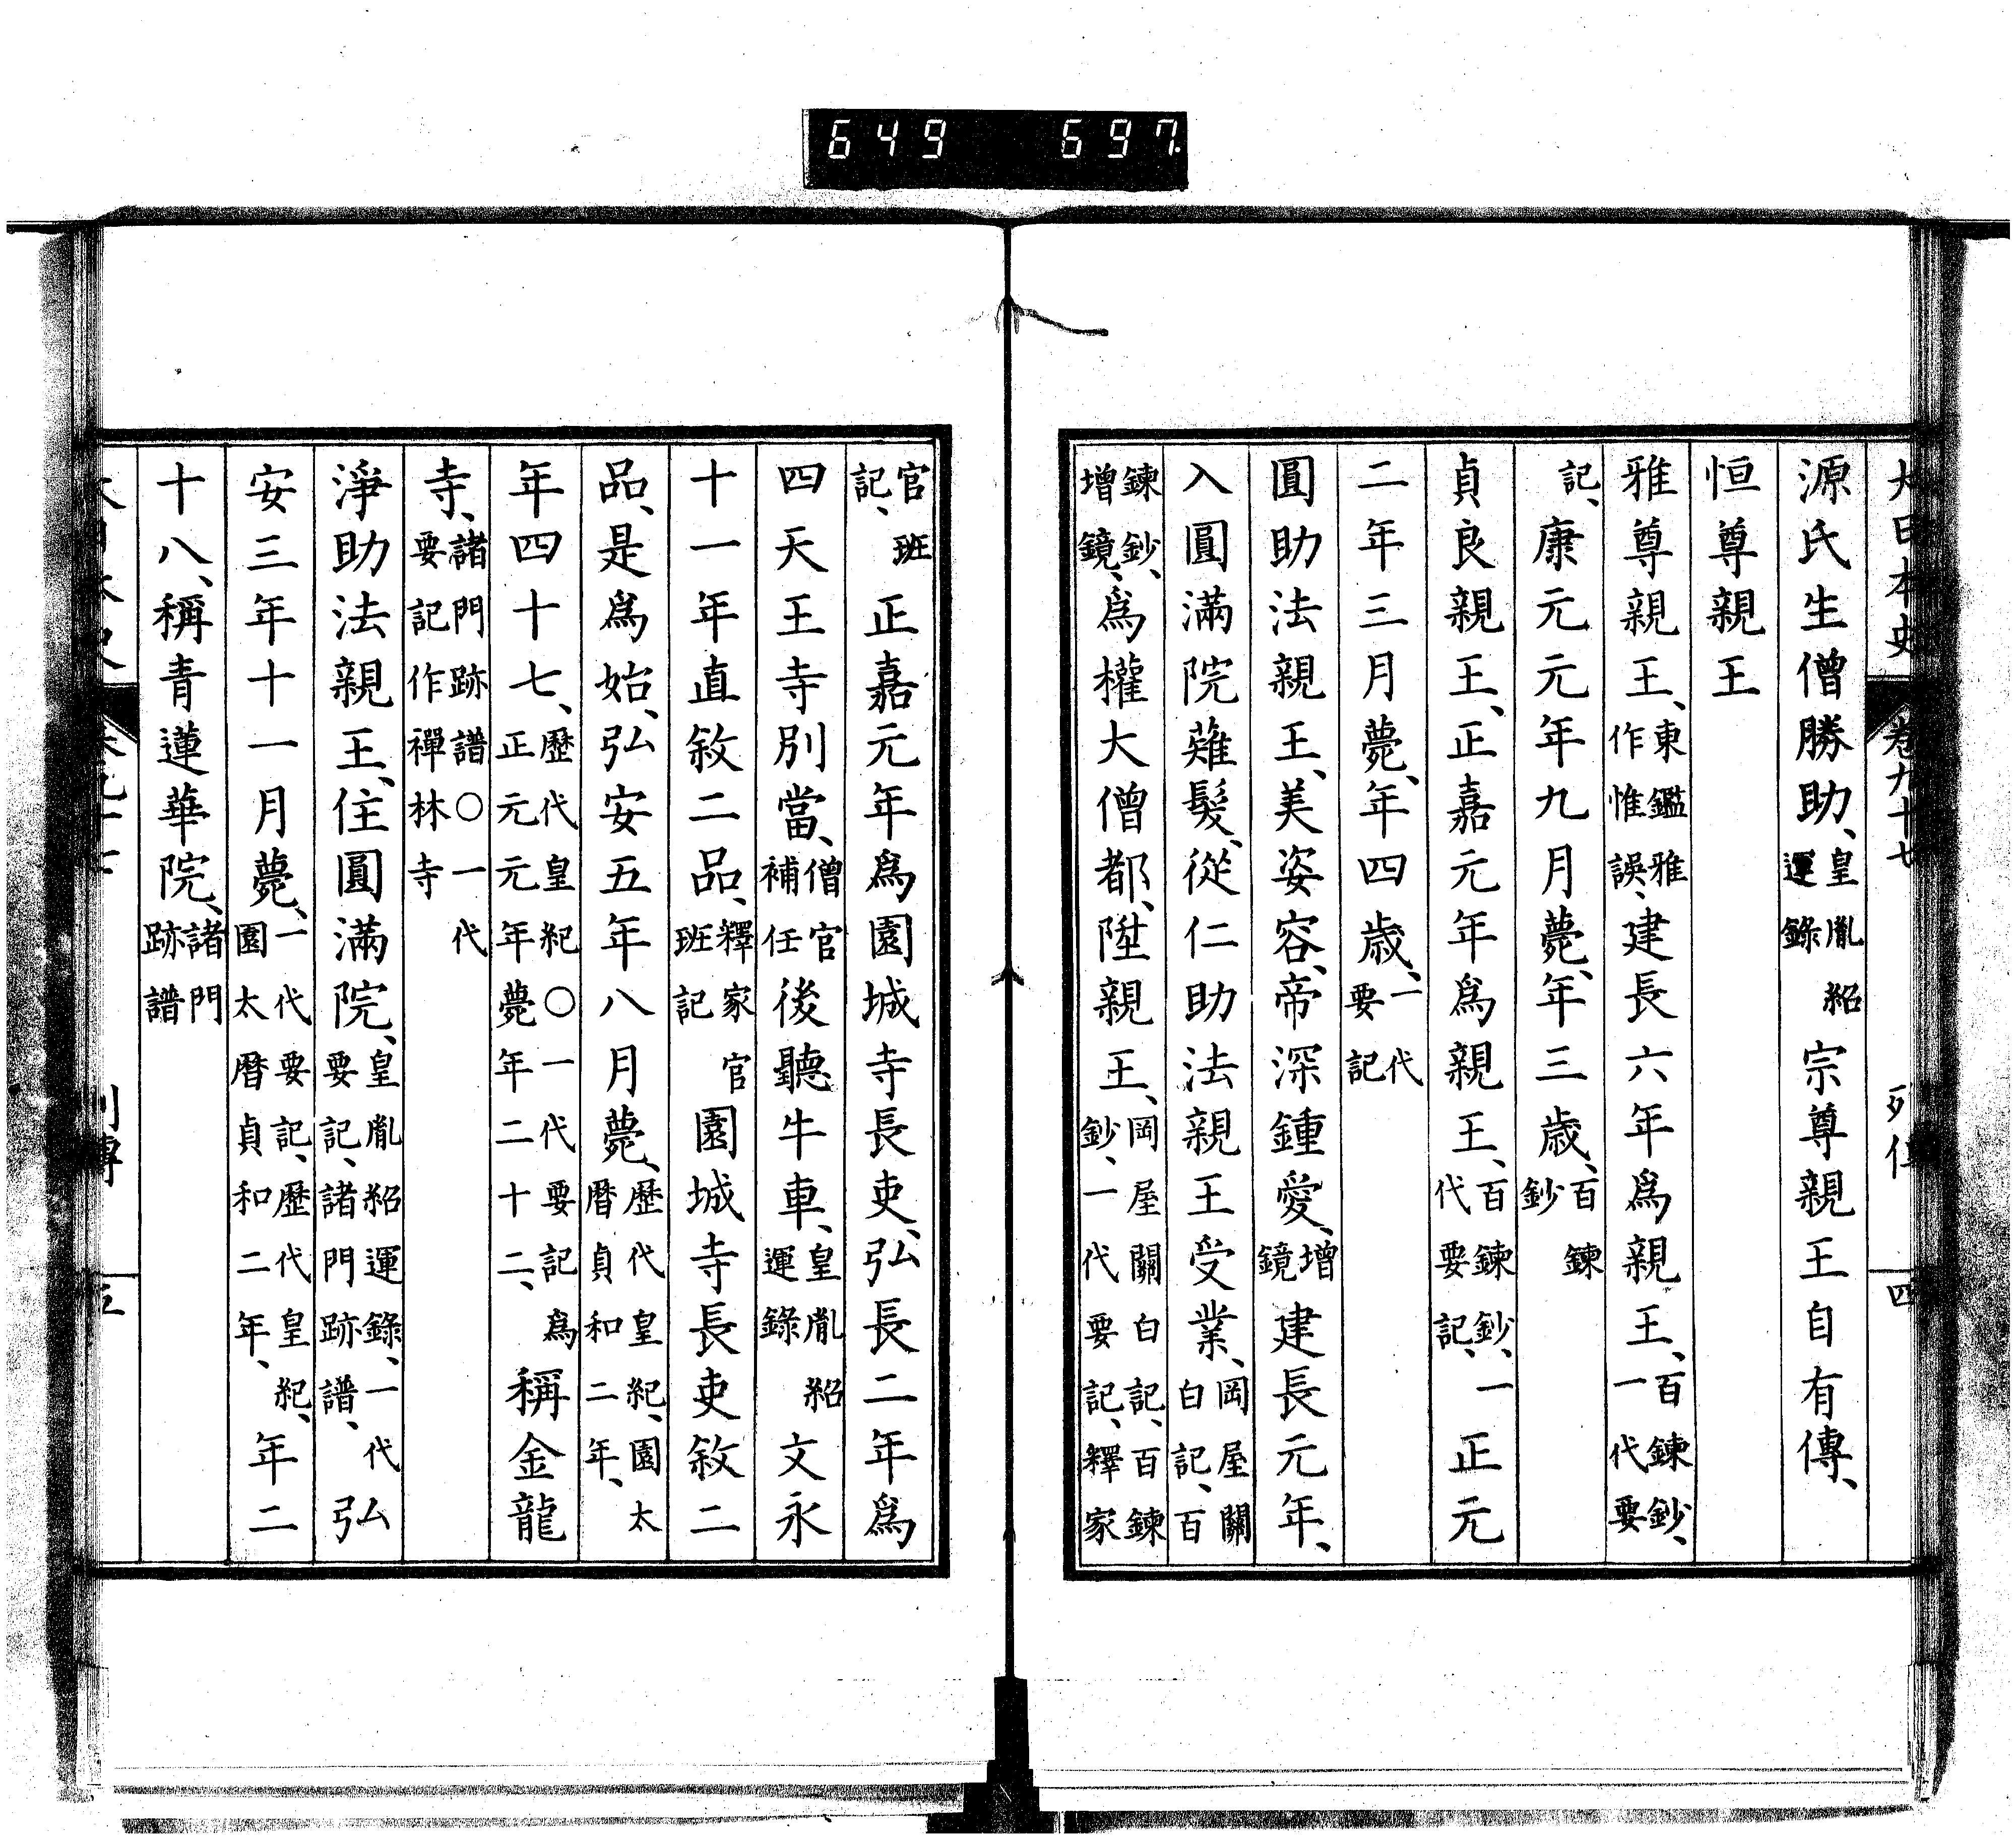 649 697.
大日本史 卷九十七 列傳 四
源氏生僧勝助、皇胤紹運錄宗尊親王自有傳、
恒尊親王
雅尊親王、東鑑雅作惟誤、建長六年爲親王、百鍊鈔、一代要
記、康元元年九月薨、年三歳、百鍊鈔
貞良親王、正嘉元年爲親王、百鍊鈔、一代要記、正元
二年三月薨、年四歳、一代要記
圓助法親王、美姿容、帝深鍾愛、增鏡建長元年、
入圓滿院薙髮、從仁助法親王受業、岡屋關白記、百
鍊鈔、增鏡、爲權大僧都、陞親王、岡屋關白記、百鍊鈔、一代要記、釋家
官班記、正嘉元年爲園城寺長吏、弘長二年爲
四天王寺別當、僧官補任後聽牛車、皇胤紹運錄文永
十一年直敘二品、釋家官班記園城寺長吏敘二
品、是爲始、弘安五年八月薨、歷代皇紀、園太曆貞和二年、
年四十七、歷代皇紀○一代要記爲正元元年薨年二十二、稱金龍
寺、諸門跡譜○一代要記作禪林寺
淨助法親王、住圓滿院、皇胤紹運錄、一代要記、諸門跡譜、弘
安三年十一月薨、一代要記、歷代皇紀、園太曆貞和二年、年二
十八、稱青蓮華院、諸門跡譜